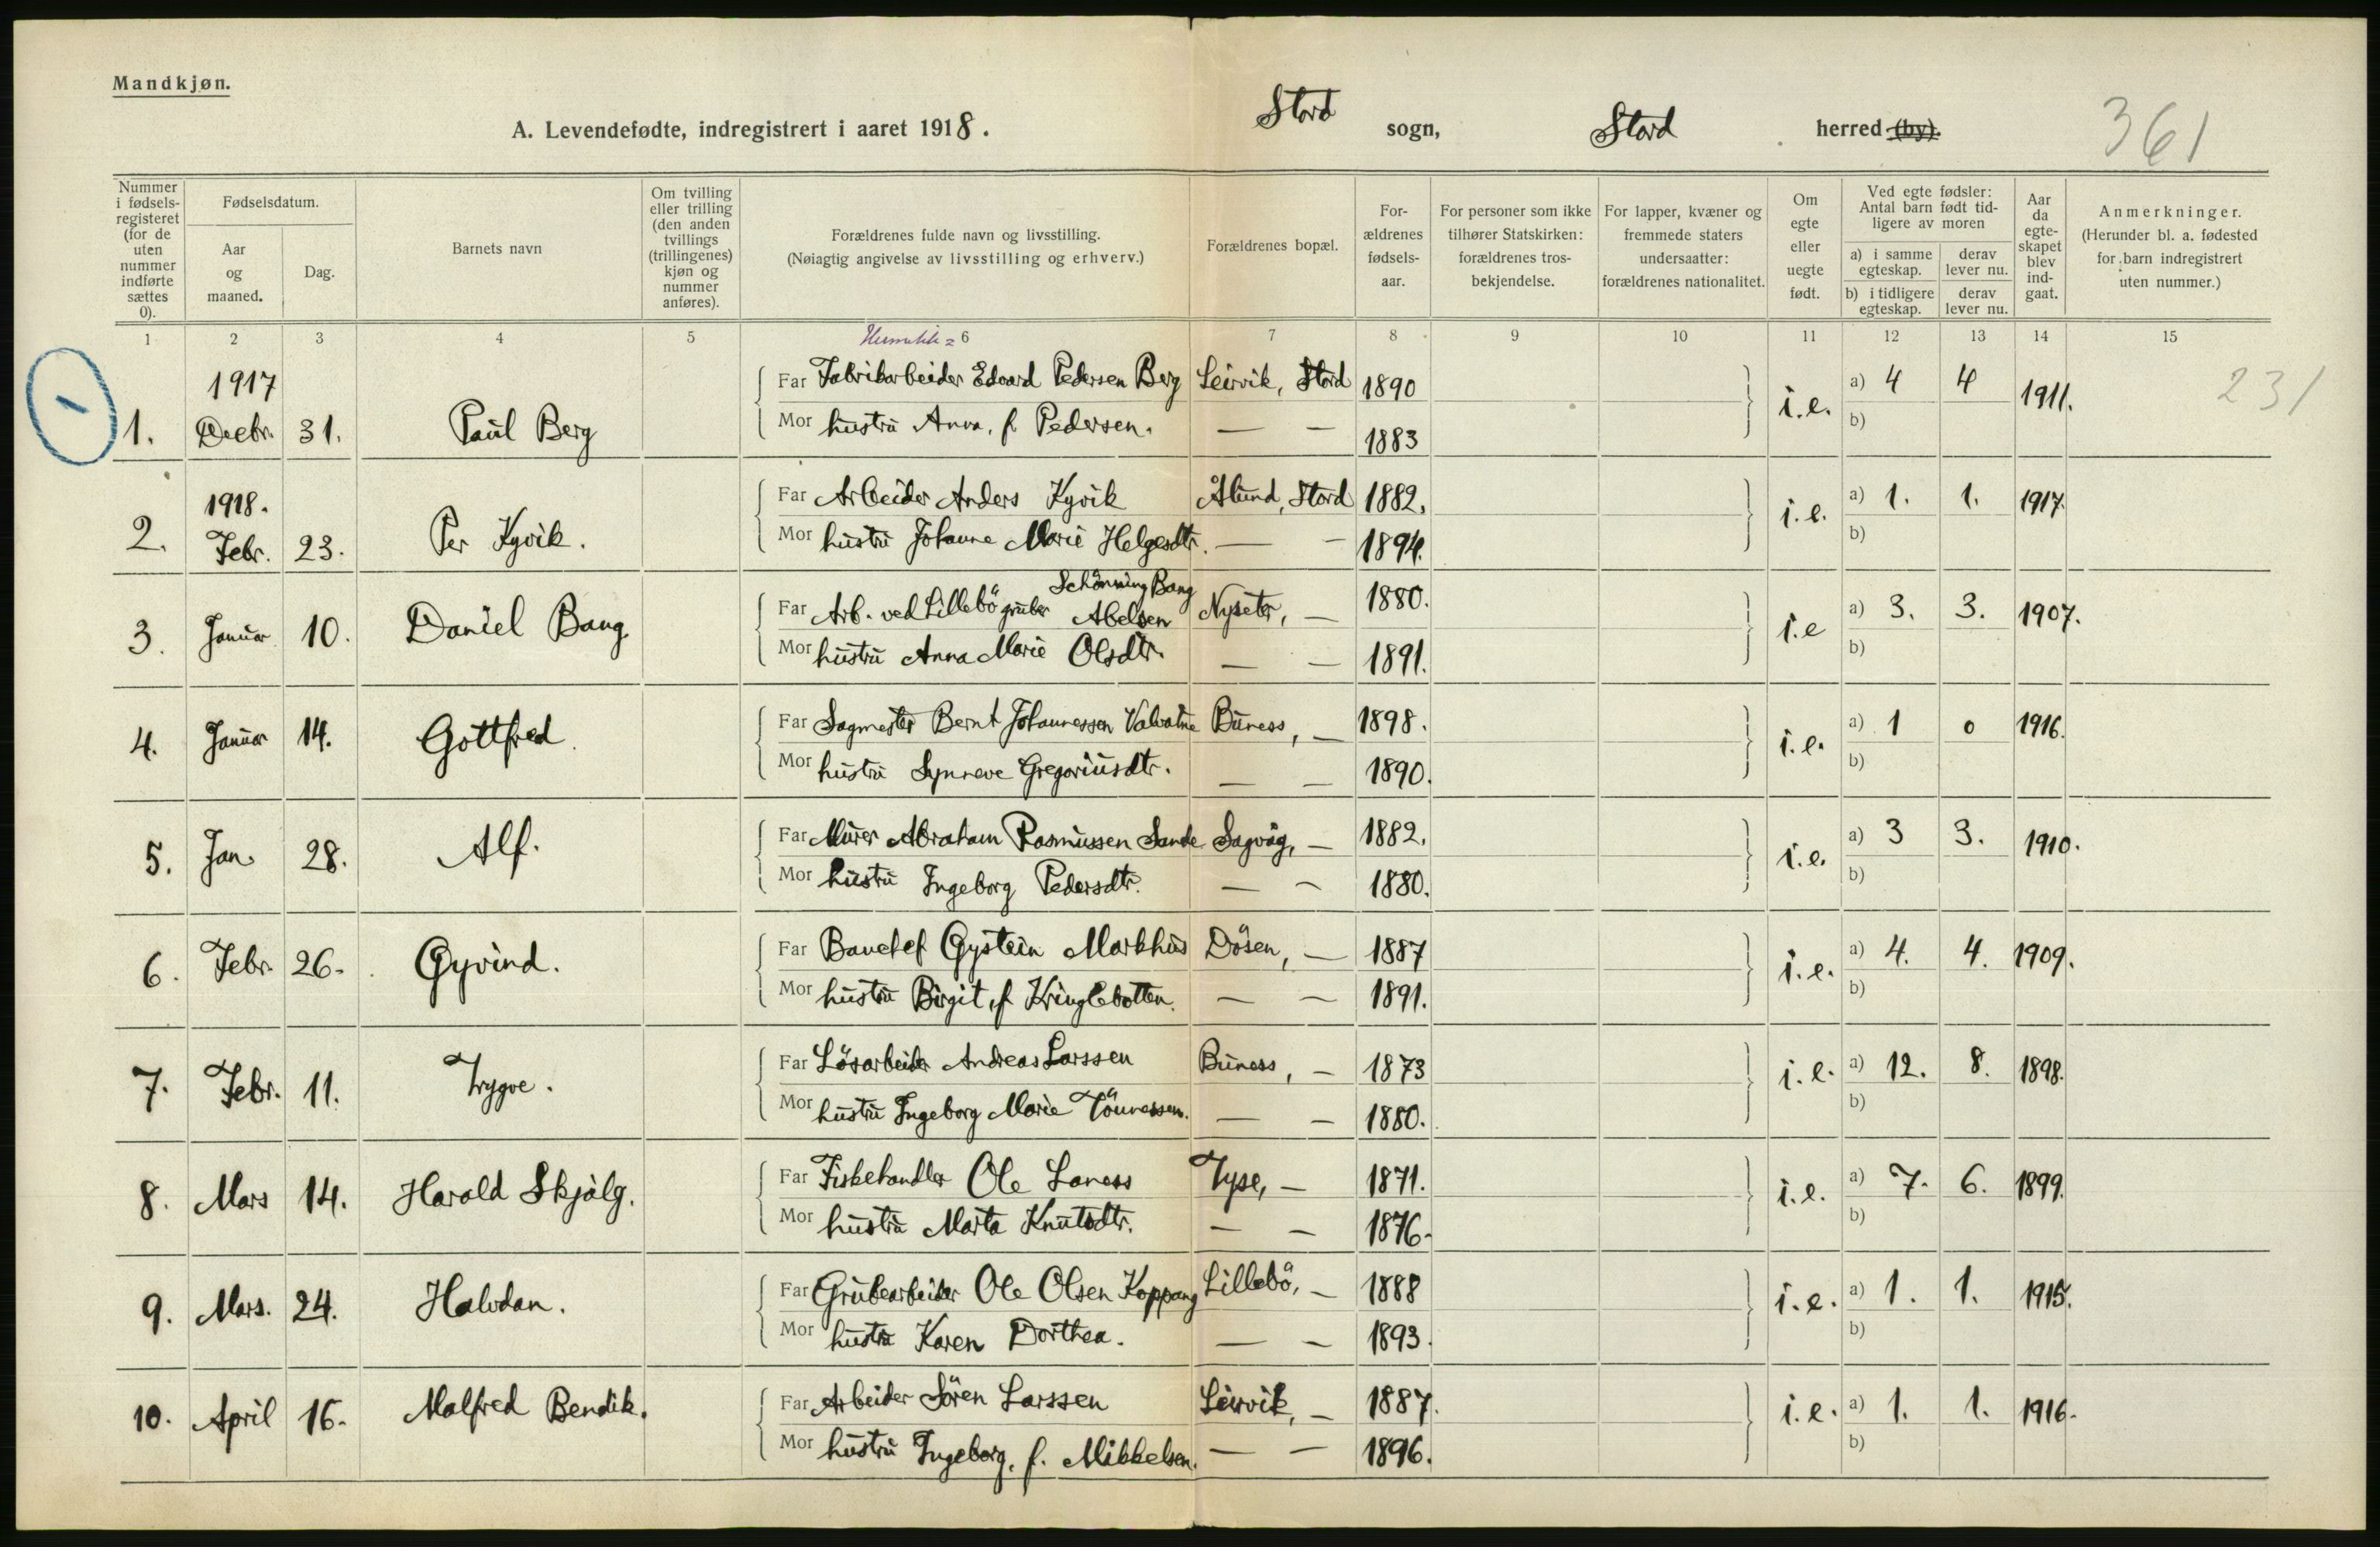 Mandkjøn.
A. Levendefødte, indregistrert i aaret 1918. Stord sogn, Stord herred (by). 361
Nummer i fødsels-registeret (for de uten nummer indførte sættes 0).
Fødselsdatum.
Aar og maaned.
Dag.
Barnets navn
Om tvilling eller trilling (den anden tvillings (trillingenes) kjøn og nummer anføres).
Forældrenes fulde navn og livsstilling.
(Nøiagtig angivelse av livsstilling og erhverv.)
Forældrenes bopæl.
For-ældrenes fødsels-aar.
For personer som ikke tilhører Statskirken: forældrenes tros-bekjendelse.
For lapper, kvæner og fremmede staters undersaatter: forældrenes nationalitet.
Om egte eller uegte født.
Ved egte fødsler: Antal barn født tid-ligere av moren
a) i samme egteskap.
derav lever nu.
b) i tidligere egteskap.
derav lever nu.
Aar da egte-skapet blev ind-gaat.
Anmerkninger.
(Herunder bl. a. fødested for barn indregistrert uten nummer.)
1 2 3 4 5 6 7 8 9 10 11 12 13 14 15
1917
Far Fabrikarbeider Edvard Pedersen Berg Leirvik, Stord 1890
1. Decbr. 31. Paul Berg i.e. a) 4 4 1911. 231
Mor hustru Anna, f. Pedersen. — — 1883 b)
1918.
Far Arbeider Anders Kyvik Ålund, Stord 1882.
2. Febr. 23. Per Kyvik. i.e. a) 1. 1. 1917.
Mor hustru Johanne Marie Helgesdtr. — — 1894. b)
Schönning Bang
Far Arb. ved Lillebö gruber Abelsen Nyseter, — 1880.
3. Januar 10. Daniel Bang. i.e a) 3. 3. 1907.
Mor hustru Anna Marie Olsdtr. — — 1891. b)
Far Sagmester Bernt Johannessen Valvatne Buness, — 1898.
4. Januar 14. Gottfred. i.e. a) 1 0 1916.
Mor hustru Synneve Gregoriusdtr. — — 1890. b)
Far Murer Abraham Rasmussen Sande Sagvåg, — 1882.
5. Jan. 28. Alf. i.e. a) 3 3. 1910.
Mor hustru Ingeborg Pedersdtr. — — 1880. b)
Far Banchef Øystein Markhus Dösen, — 1887
6. Febr. 26. Øyvind. i.e. a) 4. 4. 1909.
Mor hustru Birgit, f. Kringlebotten. — — 1891. b)
Far Lösarbeider Andreas Larssen Buness, — 1873
7. Febr. 11. Trygve. i.e. a) 12. 8. 1898.
Mor hustru Ingeborg Marie Tönnessen. — — 1880. b)
Far Fiskehandler Ole Laness Tyse, — 1871.
8. Mars 14. Harald Skjalg. i.e. a) 7. 6. 1899.
Mor hustru Marta Knutsdtr. — — 1876. b)
Far Grubearbeider Ole Olsen Koppang Lillebö, — 1888
9. Mars. 24. Halvdan. i.e. a) 1. 1. 1915.
Mor hustru Karen Dorthea. — — 1893. b)
Far Arbeider Sören Larssen Leirvik, — 1887.
10. April 16. Malfred Bendik. i.e. a) 1. 1. 1916.
Mor hustru Ingeborg, f. Mikkelsen. — — 1896. b)